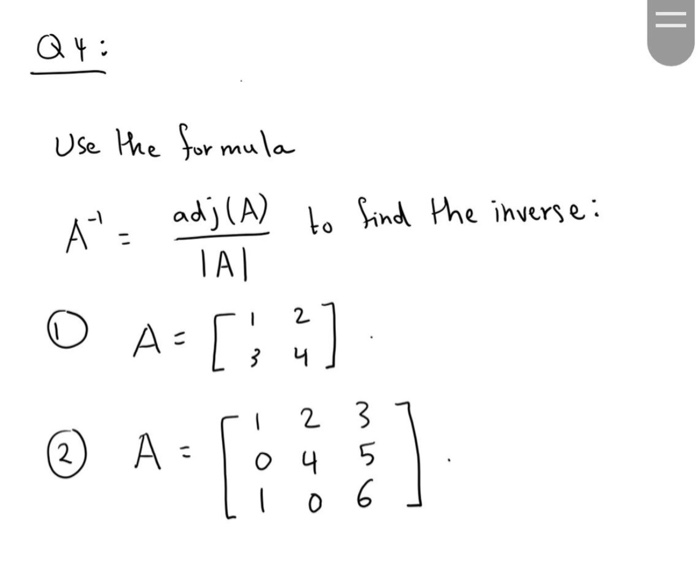 Q4:
Use the formula
A⁻¹ = adj(A) / |A| to find the inverse:
① A = [ 1 2
3 4 ] .
② A = [ 1 2 3
0 4 5
1 0 6 ] .